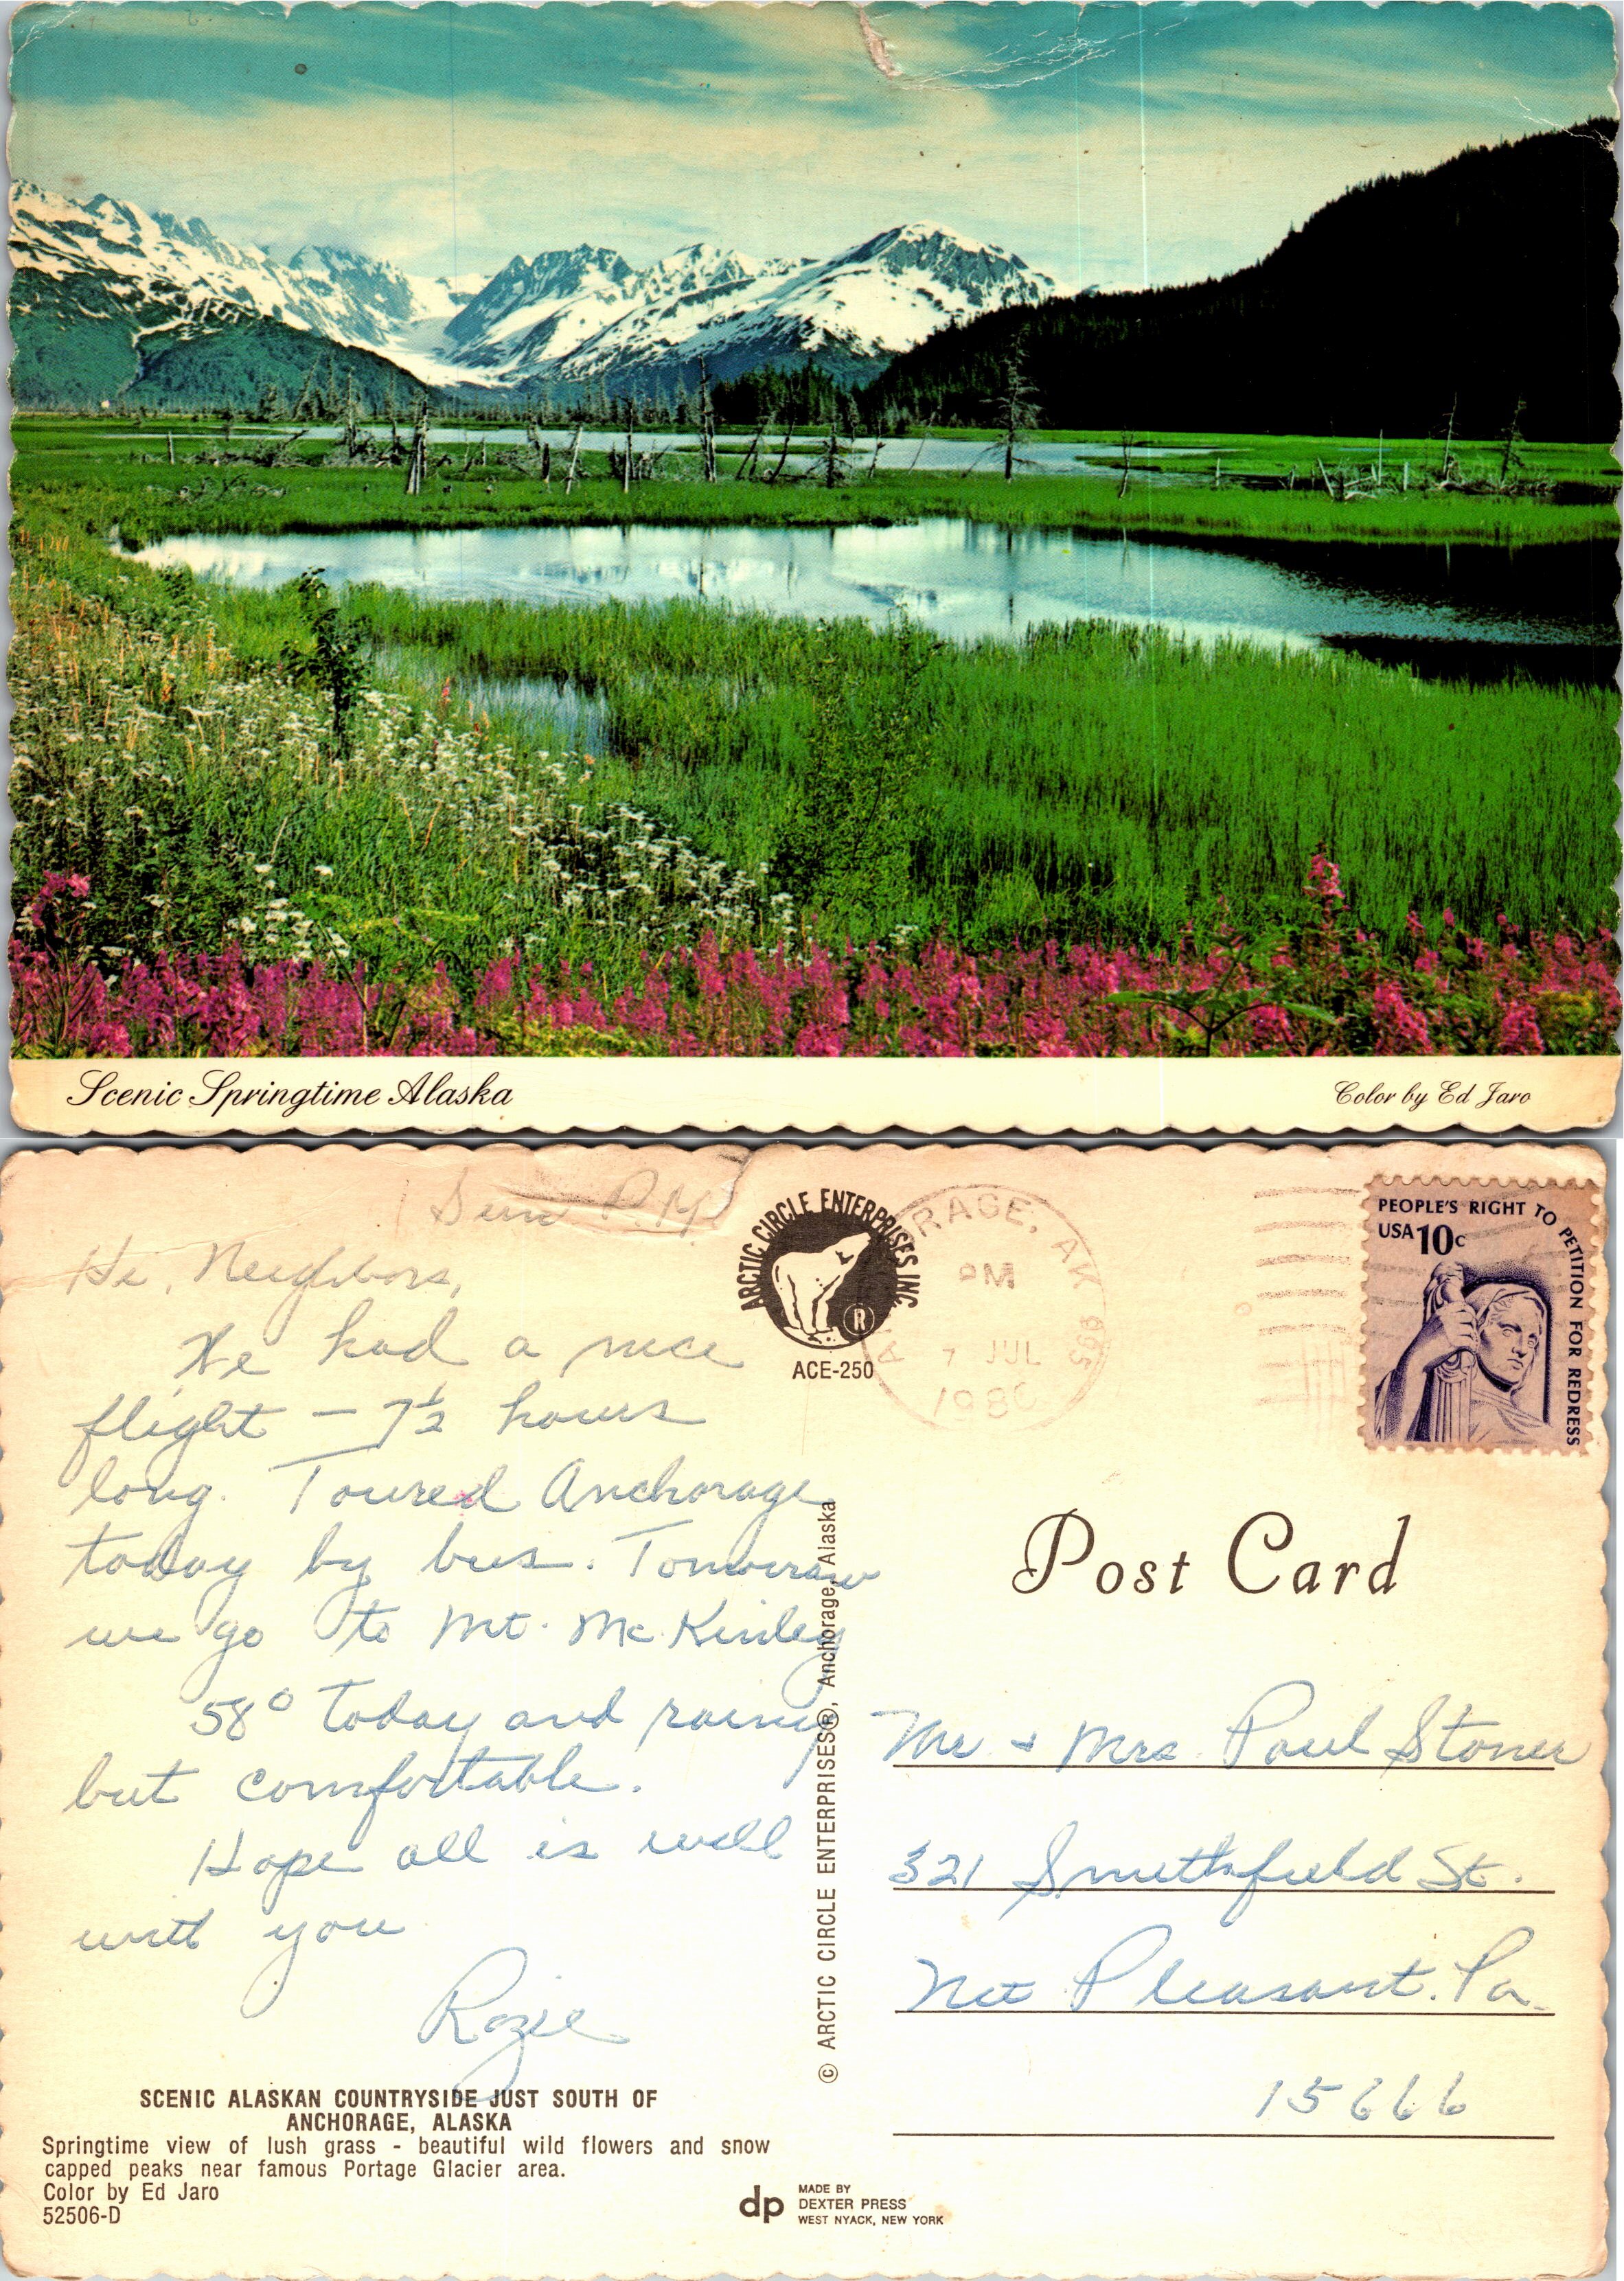 Scenic Springtime Alaska
Color by Ed Jaro
Sun P.M.
Hi, Neighbors,
We had a nice
flight - 7½ hours
long. Toured Anchorage
today by bus. Tomorrow
we go to Mt. McKinley
58° today and rainy
but comfortable.
Hope all is well
with you
Rozie
SCENIC ALASKAN COUNTRYSIDE JUST SOUTH OF
ANCHORAGE, ALASKA
Springtime view of lush grass - beautiful wild flowers and snow
capped peaks near famous Portage Glacier area.
Color by Ed Jaro
52506-D
ARCTIC CIRCLE ENTERPRISES INC.
®
ACE-250
© ARCTIC CIRCLE ENTERPRISES®, Anchorage, Alaska
dp
MADE BY
DEXTER PRESS
WEST NYACK, NEW YORK
RAGE, AK 995
PM
7 JUL
1980
PEOPLE'S RIGHT TO PETITION FOR REDRESS
USA 10c
Post Card
Mr. + Mrs. Paul Stoner
321 Smithfield St.
Mt Pleasant. Pa.
15666